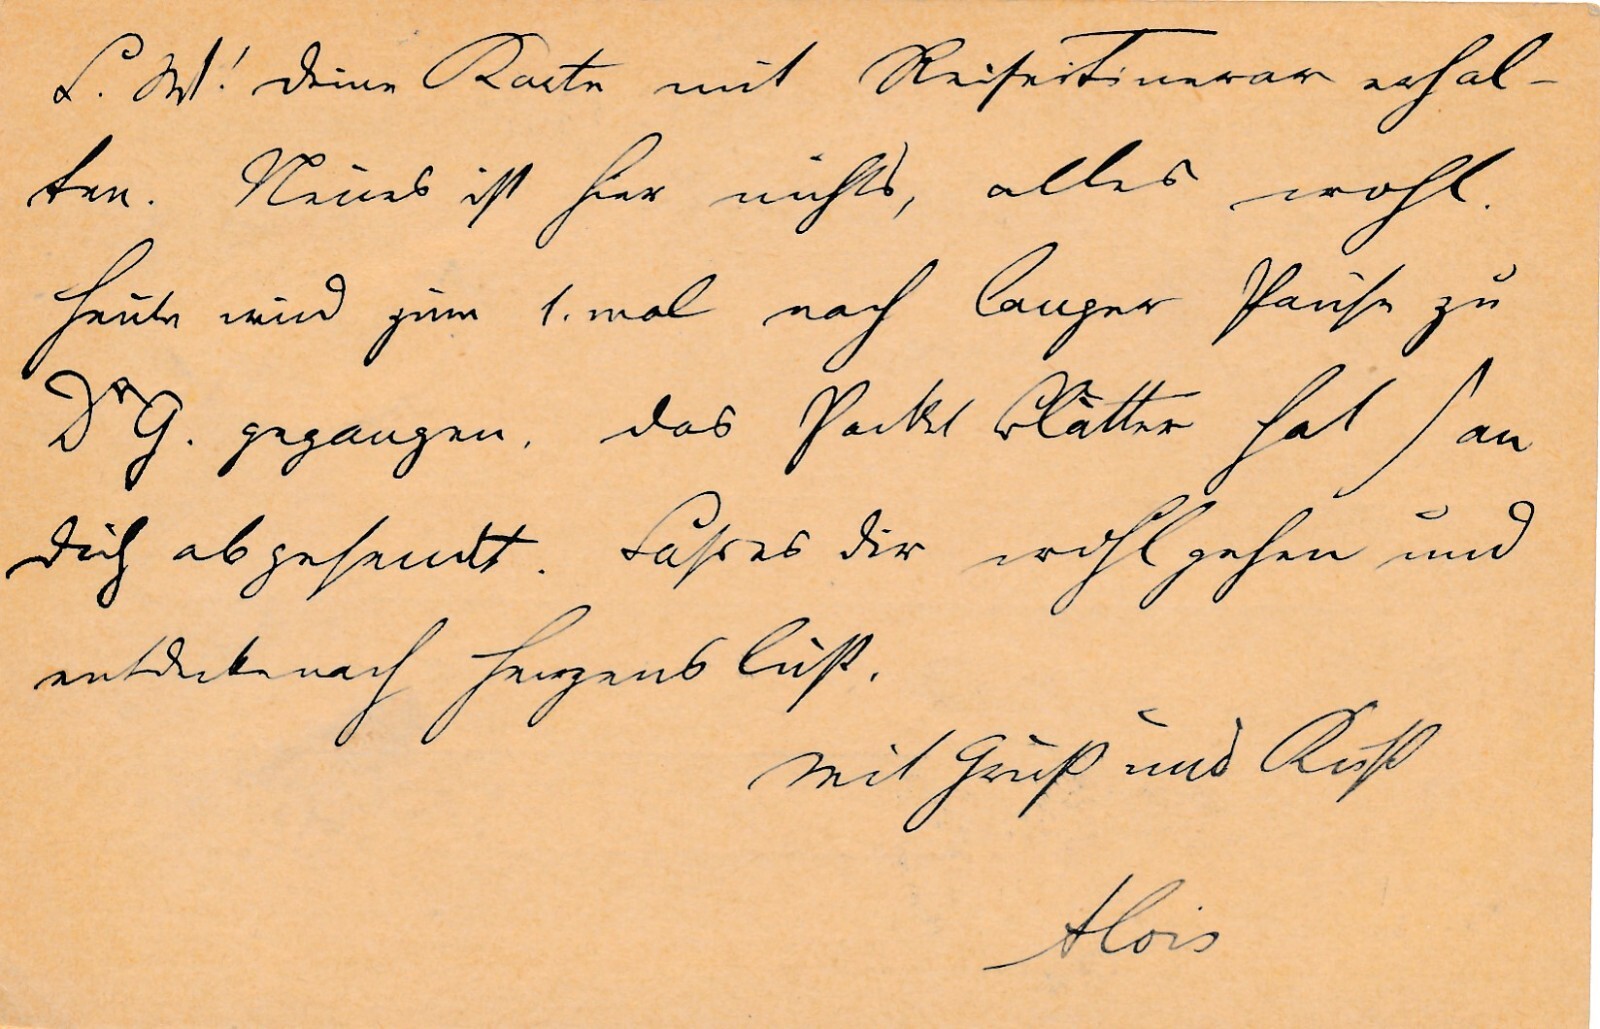 L. W! Deine Karte mit Reiseitinerar erhal-
ten. Neues ist hier nichts, alles wohl.
Heute wird zum 1. mal nach langer Pause zu
Dr G. gegangen. Das Packet Blätter hat an
Dich abgesendt. Lass es dir wohl gehen und
entdecke nach Herzenslust.
Mit Gruß und Kuß
Alois